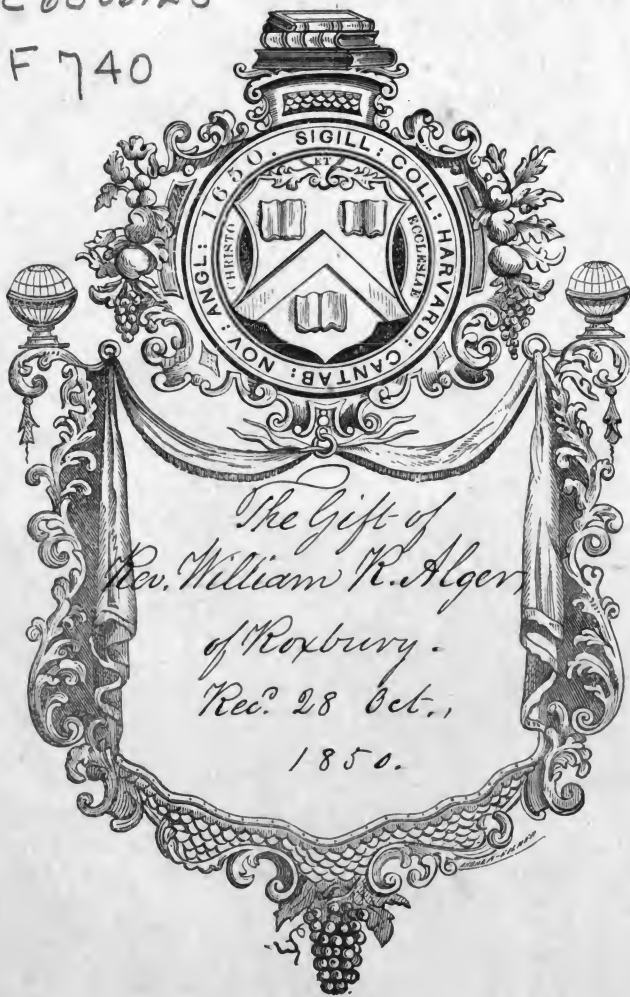 F 740
SIGILL: COLL: HARVARD: CANTAB: NOV: ANGL: 1650.
CHRISTO
ET
ECCLESIAE
The Gift of
Rev. William R. Alger,
of Roxbury.
Rec.d 28 Oct.,
1850.